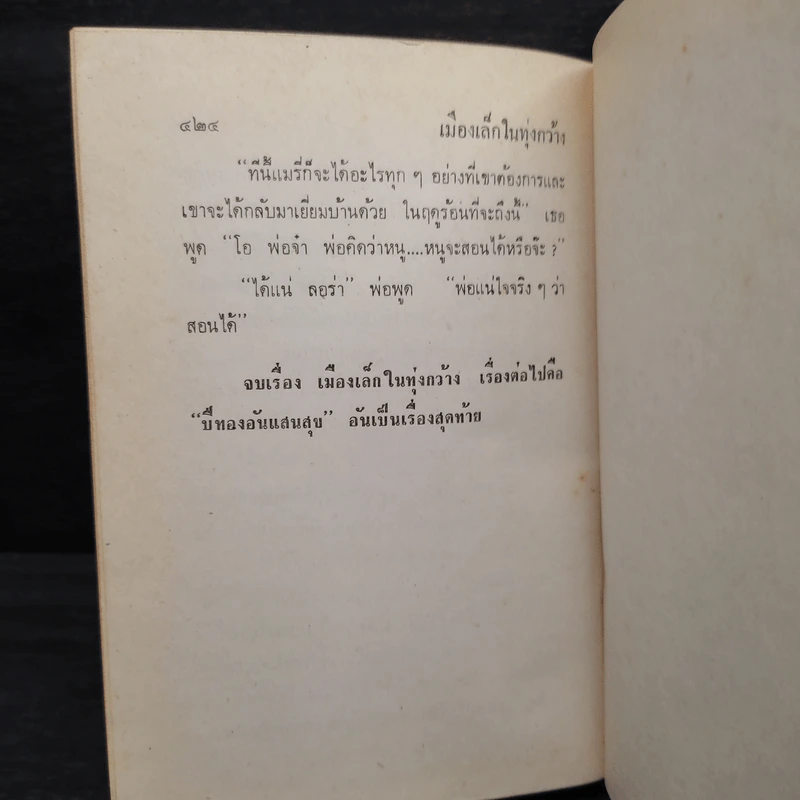 ๔๒๔ เมืองเล็กในทุ่งกว้าง
“ทีนี้แมรี่ก็จะได้อะไรทุก ๆ อย่างที่เขาต้องการและ
เขาจะได้กลับมาเยี่ยมบ้านด้วย ในฤดูร้อนที่จะถึงนี้” เธอ
พูด “โอ พ่อจ๋า พ่อคิดว่าหนู....หนูจะสอนได้หรือจ๊ะ ?”
“ได้แน่ ลอร่า” พ่อพูด “พ่อแน่ใจจริง ๆ ว่า
สอนได้”
จบเรื่อง เมืองเล็กในทุ่งกว้าง เรื่องต่อไปคือ
“ปีทองอันแสนสุข” อันเป็นเรื่องสุดท้าย